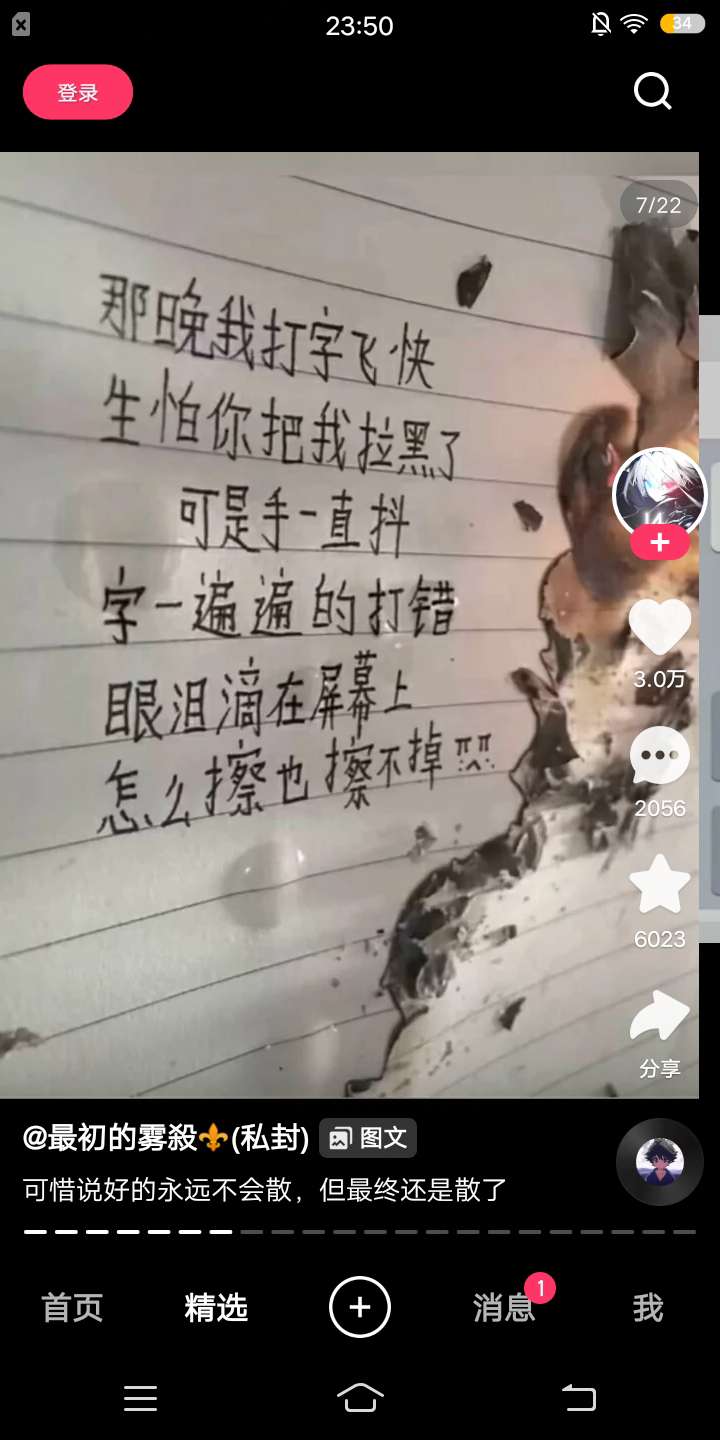 23:50
34
登录
7/22
那晚我打字飞快
生怕你把我拉黑了
可是手一直抖
字一遍遍的打错
眼泪滴在屏幕上
怎么擦也擦不掉
3.0万
2056
6023
分享
@最初的雾殺⚜(私封) 图文
可惜说好的永远不会散，但最终还是散了
首页 精选 消息 1 我